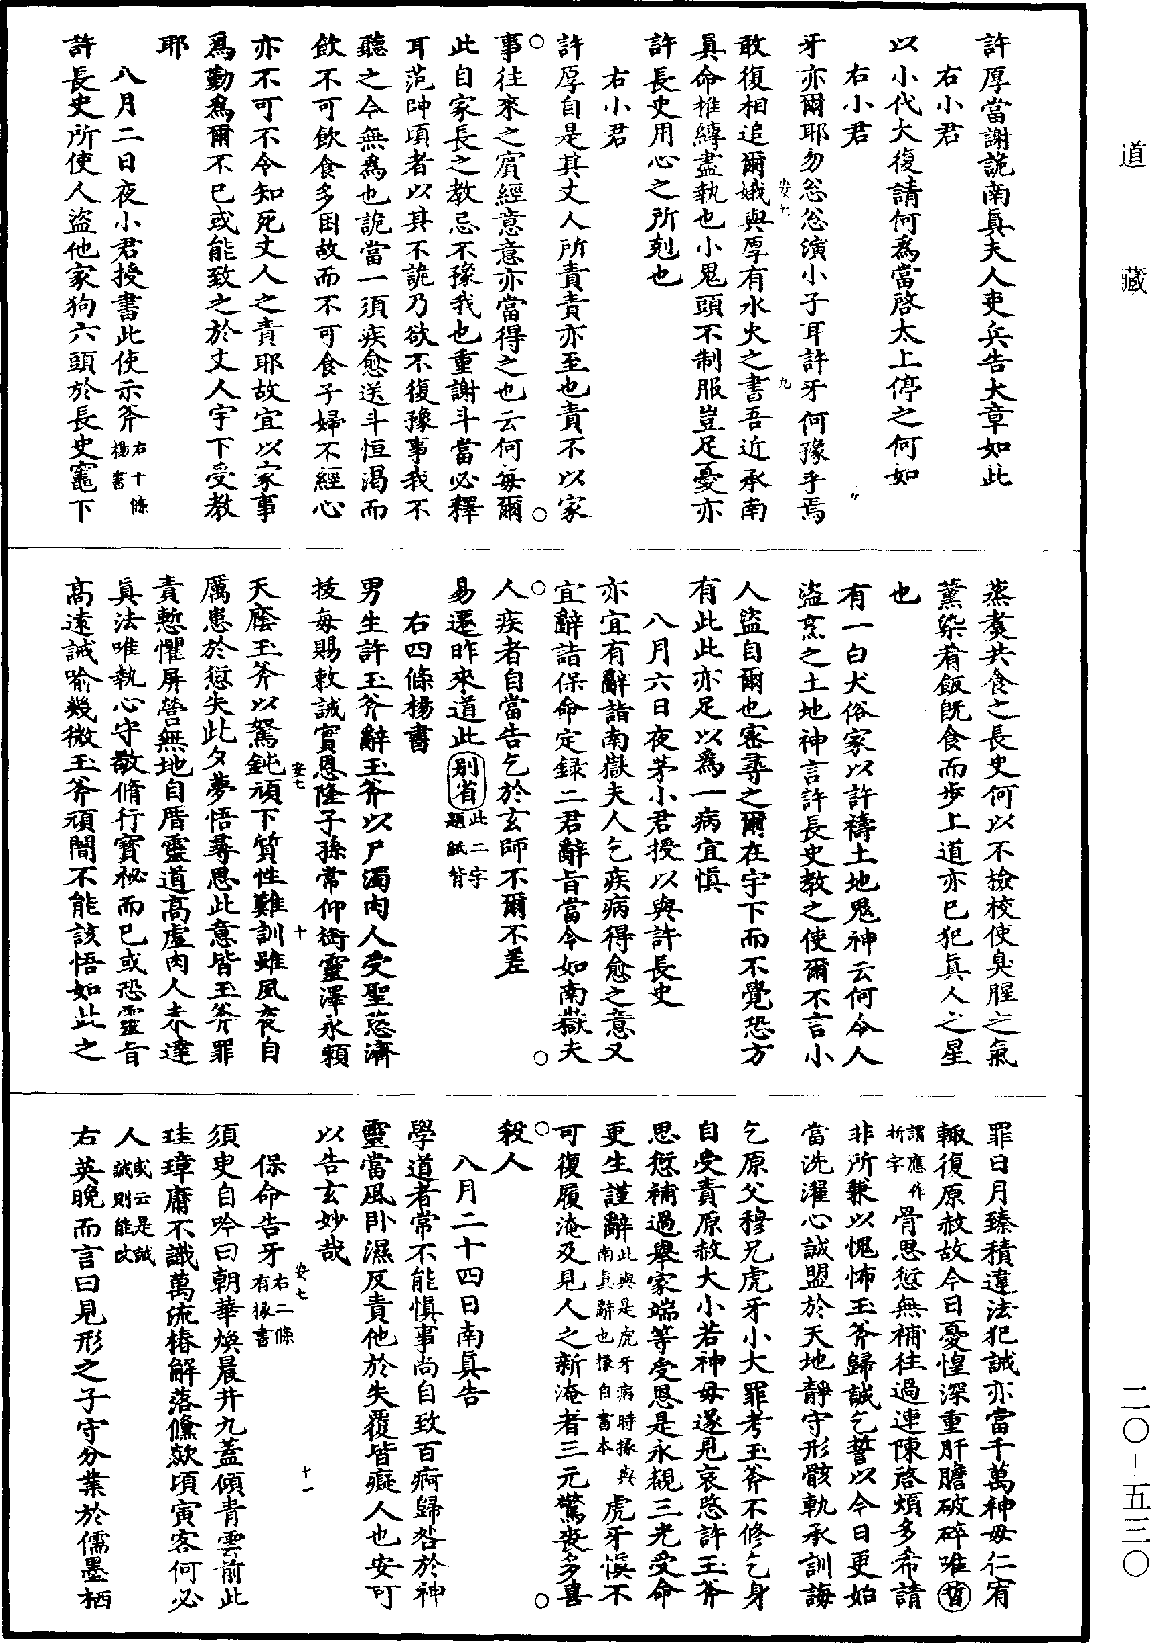 道藏
二〇—五三〇
許厚當謝詭南眞夫人吏兵告大章如此
右小君
以小代大復請何爲當啓太上停之何如
右小君
牙亦爾耶勿忿忿演小子耳許牙何豫乎焉
敢復相追爾娥與厚有水火之書吾近承南
安七
九
眞命椎縛盡執也小鬼頭不制服豈足憂亦
許長史用心之所剋也
右小君
許厚自是其丈人所責責亦至也責不以家
事往來之賔經意意亦當得之也云何每爾
此自家長之教忌不豫我也重謝斗當必釋
耳范帥頃者以其不詭乃欲不復豫事我不
聽之今無爲也詭當一須疾愈送斗恒渴而
飲不可飲食多因故而不可食子婦不經心
亦不可不令知死丈人之責耶故宜以家事
爲勤爲爾不已或能致之於丈人宇下受教
耶
八月二日夜小君授書此使示斧右十條楊書
許長史所使人盜他家狗六頭於長史竈下
蒸煑共食之長史何以不檢校使臭腥之氣
薰染肴飯旣食而步上道亦已犯眞人之星
也
有一白犬俗家以許禱土地鬼神云何令人
盜烹之土地神言許長史教之使爾不言小
人盜自爾也密尋之爾在宇下而不覺恐方
有此此亦足以爲一病宜愼
八月六日夜茅小君授以與許長史
亦宜有辭詣南嶽夫人乞疾病得愈之意又
宜辭詰保命定錄二君辭旨當令如南嶽夫
人疾者自當告乞於玄師不爾不差
易遷昨來道此別省此二字題紙背
右四條楊書
男生許玉斧辭玉斧以尸濁肉人受聖慈濟
拔每賜敕誠實恩隆子孫常仰銜靈澤永賴
天廕玉斧以駑鈍頑下質性難訓雖夙夜自
安七
十
厲患於愆失此夕夢悟尋思此意皆玉斧罪
責慙懼屏營無地自厝靈道高虛肉人未達
眞法唯執心守敬脩行寶祕而已或恐靈旨
高遠誠喻幾微玉斧頑闇不能該悟如此之
罪日月臻積違法犯誠亦當千萬神毋仁宥
輒復原赦故今日憂惶深重肝膽破碎唯晳
謂應作折字骨思愆無補往過連陳啓煩多希請
非所兼以愧怖玉斧歸誠乞誓以今日更始
當洗濯心誠盟於天地靜守形骸軌承訓誨
乞原父穆兄虎牙小大罪考玉斧不修乞身
自受責原赦大小若神毋遂見哀愍許玉斧
思愆補過舉家端等受恩是永覩三光受命
更生謹辭此與是虎牙病時掾與南眞辭也掾自書本虎牙愼不
可復履淹及見人之新淹者三元驚喪多喜
殺人
八月二十四日南眞告
學道者常不能愼事尚自致百痾歸咎於神
靈當風卧濕反責他於失覆皆癡人也安可
以告玄妙哉
保命告牙右二條有掾書
安七
十一
須吏自吟曰朝華煥晨井九蓋傾青雲前此
珪璋庸不識萬流椿解落儵欻頃寅客何必
人或云是誠誠則能改
右英晚而言曰見形之子守分業於儒墨栖